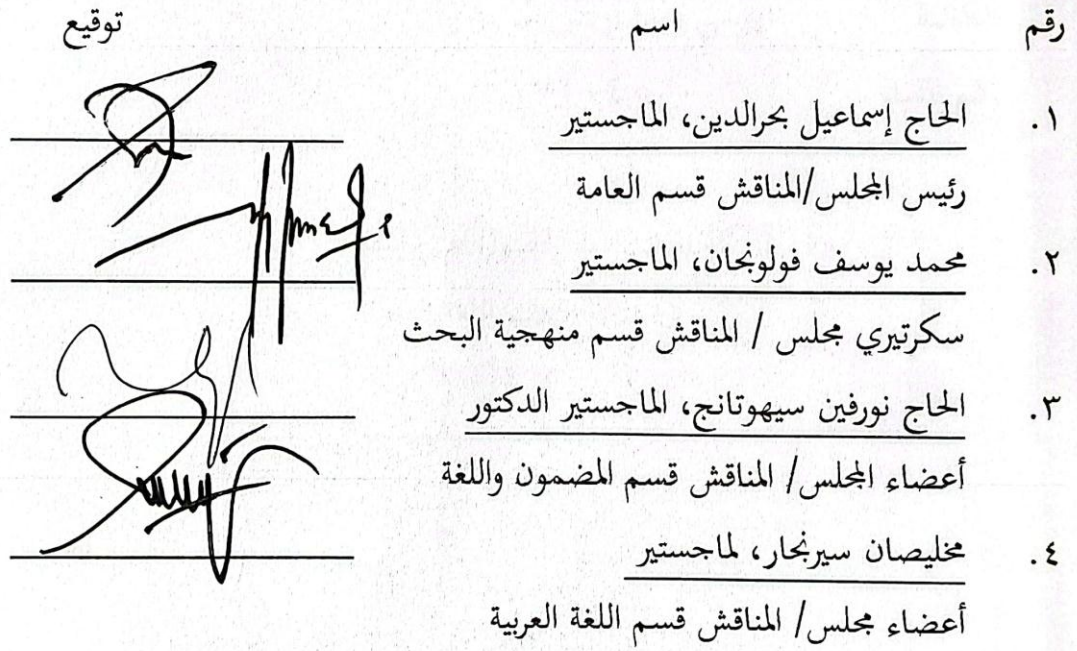 رقم اسم توقيع
١. الحاج إسماعيل بحرالدين، الماجستير
رئيس المجلس/المناقش قسم العامة
٢. محمد يوسف فولونجان، الماجستير
سكرتيري مجلس / المناقش قسم منهجية البحث
٣. الحاج نورفين سيهوتانج، الماجستير الدكتور
أعضاء المجلس/ المناقش قسم المضمون واللغة
٤. مخليصان سيرنجار، لماجستير
أعضاء مجلس/ المناقش قسم اللغة العربية